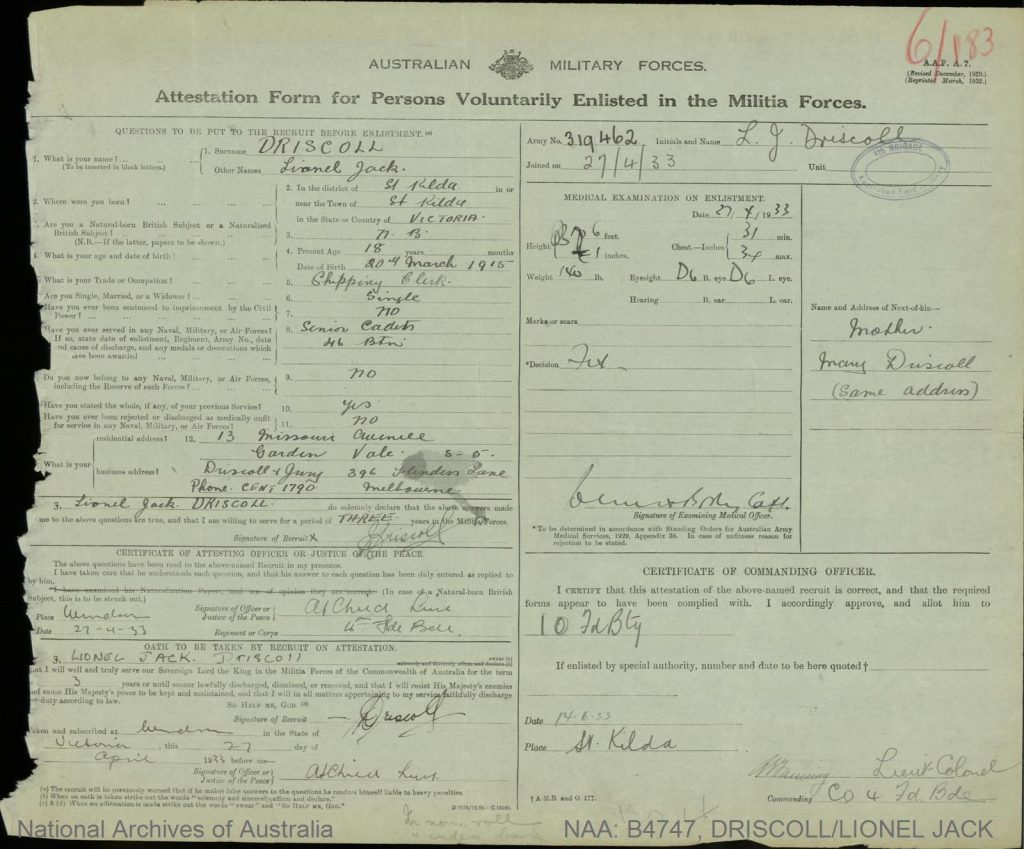 6/183
AUSTRALIAN MILITARY FORCES.
A.A.F. A.7.
(Revised December, 1929.)
(Reprinted March, 1932.)
Attestation Form for Persons Voluntarily Enlisted in the Militia Forces.
QUESTIONS TO BE PUT TO THE RECRUIT BEFORE ENLISTMENT. (a)
1. What is your name? .. .. ..
(To be inserted in block letters.)
1. Surname DRISCOLL
Other Names Lionel Jack.
2. Where were you born? .. ..
2. In the district of St Kilda in or
near the Town of St Kilda
in the State or Country of VICTORIA.
3. Are you a Natural-born British Subject or a Naturalized
British Subject?
(N.B.—If the latter, papers to be shown.)
3. N. B.
4. What is your age and date of birth?
4. Present Age 18 years months
Date of Birth 20th March 1915
What is your Trade or Occupation?
5. Shipping Clerk.
Are you Single, Married, or a Widower?
6. Single
Have you ever been sentenced to imprisonment by the Civil
Power?
7. NO
Have you ever served in any Naval, Military, or Air Forces?
If so, state date of enlistment, Regiment, Army No., date
and cause of discharge, and any medals or decorations which
have been awarded
8. Senior Cadets
46 Btn
Do you now belong to any Naval, Military, or Air Forces,
including the Reserve of such Forces?
9. NO
Have you stated the whole, if any, of your previous Service?
10. Yes
Have you ever been rejected or discharged as medically unfit
for service in any Naval, Military, or Air Forces?
11. NO
What is your
residential address? 12. 13 Missouri Avenue
Garden Vale. S-5.
business address? Driscoll & Jury 396 Flinders Lane
Phone. CENT 1790 Melbourne.
I, Lionel Jack. DRISCOLL. do solemnly declare that the above answers made
me to the above questions are true, and that I am willing to serve for a period of THREE years in the Militia Forces.
Signature of Recruit x LJ Driscoll
CERTIFICATE OF ATTESTING OFFICER OR JUSTICE OF THE PEACE.
The above questions have been read to the above-named Recruit in my presence.
I have taken care that he understands each question, and that his answer to each question has been duly entered as replied to
by him.
I have examined his Naturalization Papers, and am of opinion they are correct. (In case of a Natural-born British
Subject, this is to be struck out.)
Place Windsor
Signature of Officer or
Justice of the Peace
Date 27-4-33
Regiment or Corps 4th Fde Bde.
OATH TO BE TAKEN BY RECRUIT ON ATTESTATION.
I, LIONEL JACK. DRISCOLL swear (c)
solemnly and sincerely affirm and declare (d)
that I will well and truly serve our Sovereign Lord the King in the Militia Forces of the Commonwealth of Australia for the term
3 years or until sooner lawfully discharged, dismissed, or removed, and that I will resist His Majesty's enemies
and cause His Majesty's peace to be kept and maintained, and that I will in all matters appertaining to my service faithfully discharge
my duty according to law.
SO HELP ME, GOD. (d)
Signature of Recruit — LJ Driscoll
Taken and subscribed at Windsor in the State of
Victoria, this 27 day of
April 1933 before me—
Signature of Officer or
Justice of the Peace
(a) The recruit will be previously warned that if he makes false answers to the questions he renders himself liable to heavy penalties.
(b) When an oath is taken strike out the words "solemnly and sincerely affirm and declare."
(c) & (d) When an affirmation is made strike out the words "swear" and "So Help Me, God."
Army No. 319462 Initials and Name L. J. Driscoll
Joined on 27/4/33 Unit
BRIGADE
Australian Field
MEDICAL EXAMINATION ON ENLISTMENT.
Date 27/4/1933
Height feet.
inches.
Chest—Inches
31 min.
34 max.
Weight 140 lb. Eyesight D6 R. eye D6 L. eye.
Hearing R. ear L. ear.
Marks or scars
*Decision Fit
Signature of Examining Medical Officer.
* To be determined in accordance with Standing Orders for Australian Army
Medical Services, 1929, Appendix 36. In case of unfitness reason for
rejection to be stated.
Name and Address of Next-of-kin—
Mother.
Mary Driscoll
(Same address)
CERTIFICATE OF COMMANDING OFFICER.
I CERTIFY that this attestation of the above-named recruit is correct, and that the required
forms appear to have been complied with. I accordingly approve, and allot him to
10 Fd Bty
If enlisted by special authority, number and date to be here quoted †
Date 14-6-33
Place St. Kilda
Lieut Colonel
Commanding CO 4 Fd. Bde
† A.M.R. and O. 177.
National Archives of Australia
NAA: B4747, DRISCOLL/LIONEL JACK